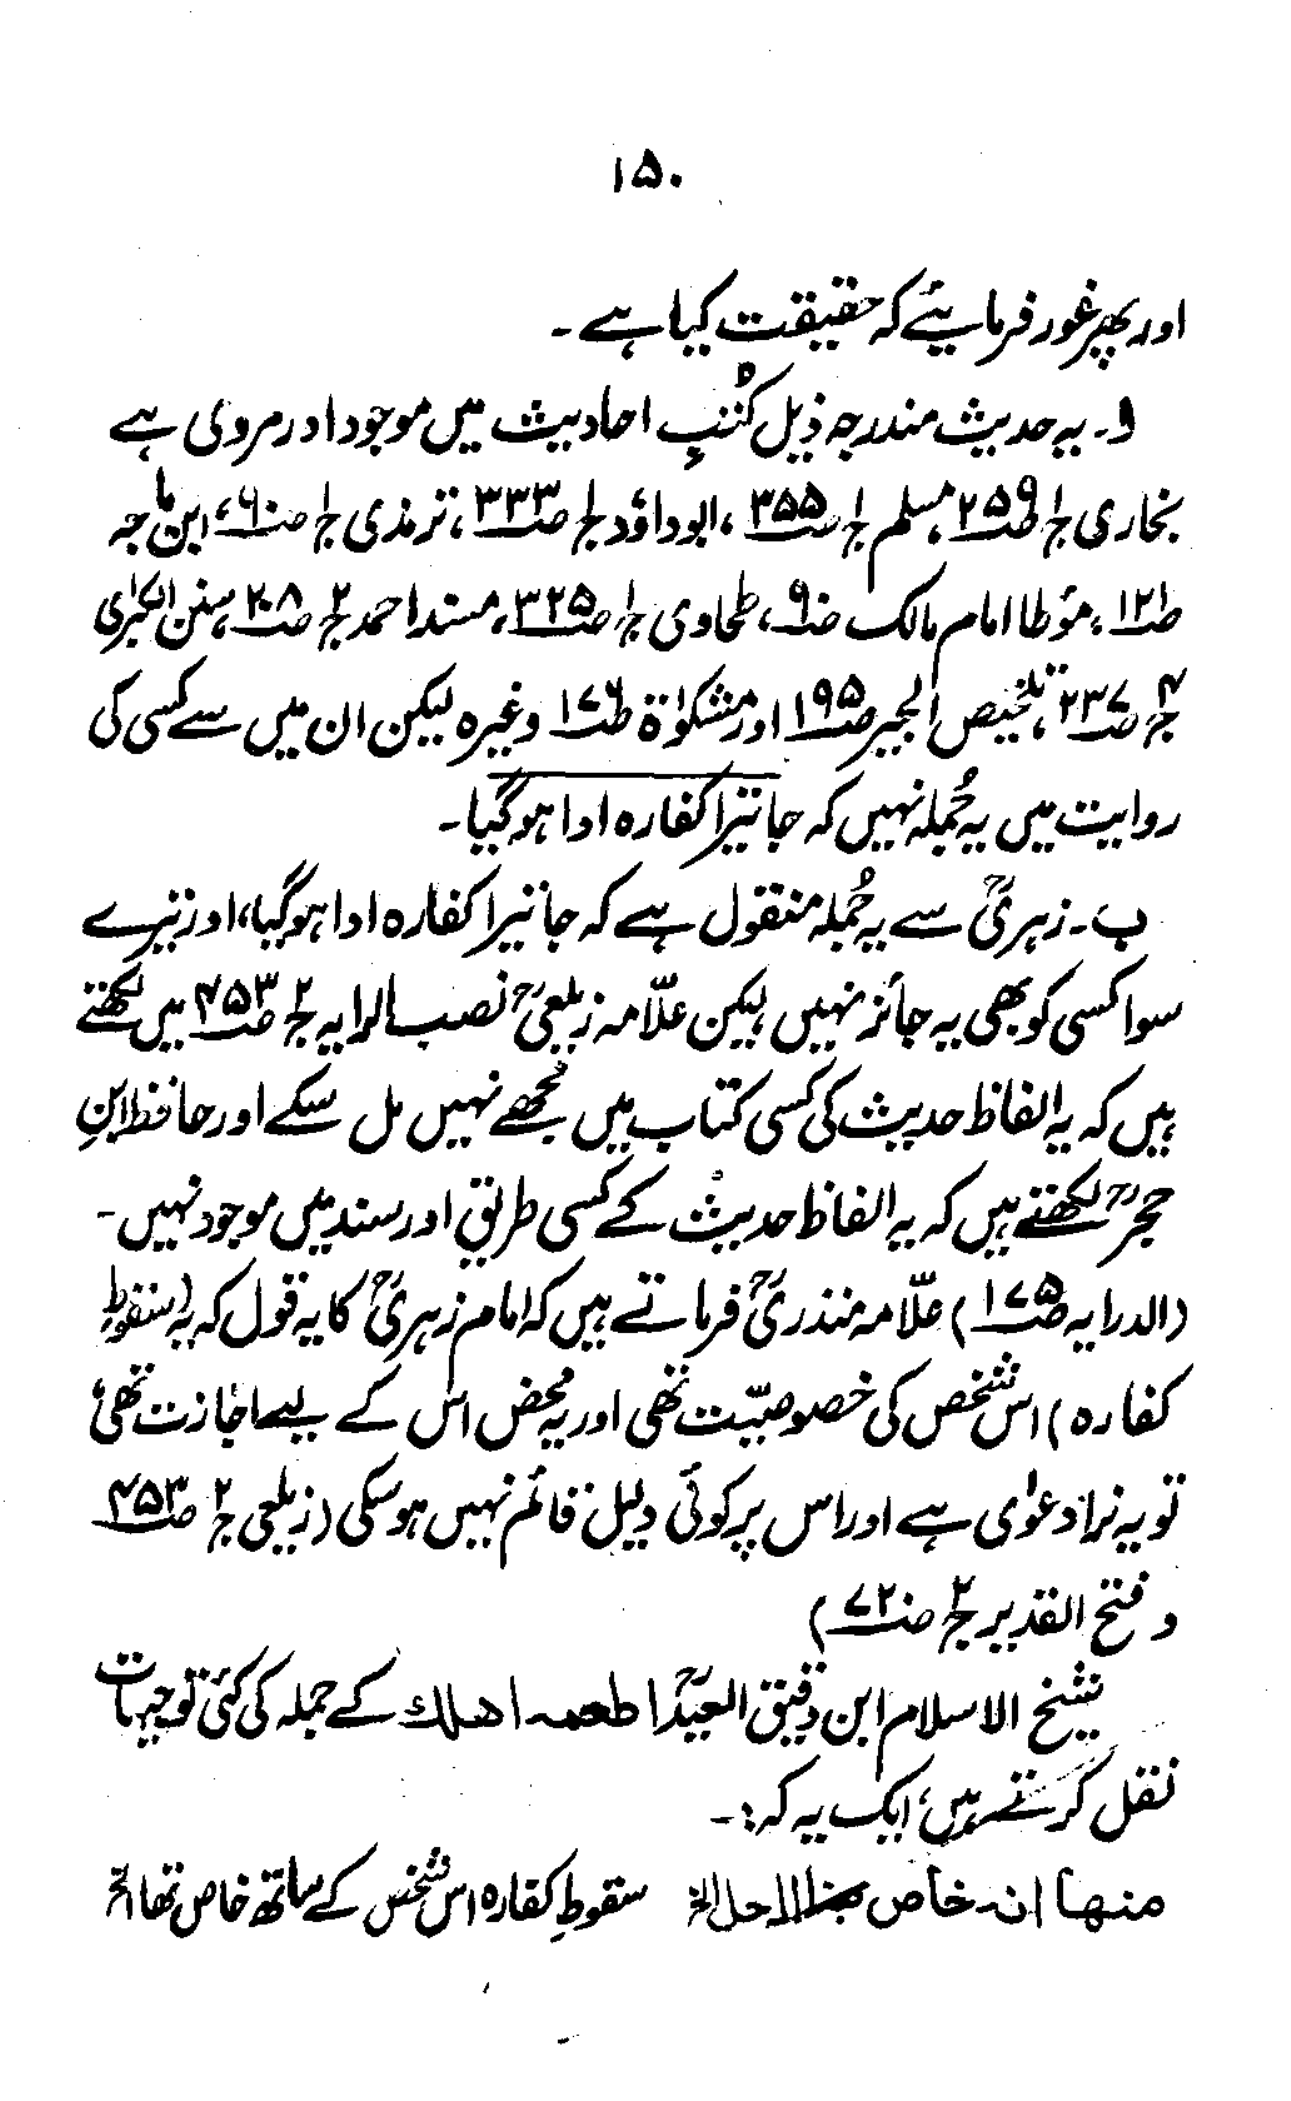 ۱۵۰
اور پھر غور فرمایئے کہ حقیقت کیا ہے۔
ا۔ یہ حدیث مندرجہ ذیل کُتبِ احادیث میں موجود اور مروی ہے
بخاری ج۱ ص۲۵۹، مسلم ج۱ ص۳۵۵، ابوداؤد ج۱ ص۳۳۳، ترمذی ج۱ ص۶۰، ابن ماجہ
ص۱۲۱، مؤطا امام مالک ص۹۰، طحاوی ج۱ ص۳۲۵، مسند احمد ج۲ ص۲۰۸، سنن الکبرٰی
ج۴ ص۲۳۷، تلخیص الحبیر ص۱۹۵ اور مشکوٰۃ ص۱۷۶ وغیرہ لیکن ان میں سے کسی کی
روایت میں یہ جُملہ نہیں کہ جا تیرا کفارہ ادا ہو گیا۔
ب۔ زہریؒ سے یہ جُملہ منقول ہے کہ جا تیرا کفارہ ادا ہو گیا، اور تیرے
سوا کسی کو بھی یہ جائز نہیں لیکن علّامہ زیلعیؒ نصب الرایہ ج۲ ص۴۵۳ میں لکھتے
ہیں کہ یہ الفاظ حدیث کی کسی کتاب میں مُجھے نہیں مل سکے اور حافظ ابنِ
حجرؒ لکھتے ہیں کہ یہ الفاظ حدیث کے کسی طریق اور سند میں موجود نہیں۔
(الدرایہ ص۱۷۵) علّامہ منذریؒ فرماتے ہیں کہ امام زہریؒ کا یہ قول کہ یہ (سقوطِ
کفارہ) اس شخص کی خصوصیّت تھی اور یہ محض اس کے لیے اجازت تھی،
تو یہ نرا دعوٰی ہے اور اس پر کوئی دلیل قائم نہیں ہو سکی (زیلعی ج۲ ص۴۵۳
و فتح القدیر ج۲ ص۷۲)
شیخ الاسلام ابن دقیق العیدؒ اطعمه اهلك کے جملہ کی کئی توجیہات
نقل کرتے ہیں، ایک یہ کہ:۔
منها انه خاص بهذا الرجل الخ سقوطِ کفارہ اس شخص کے ساتھ خاص تھا الخ